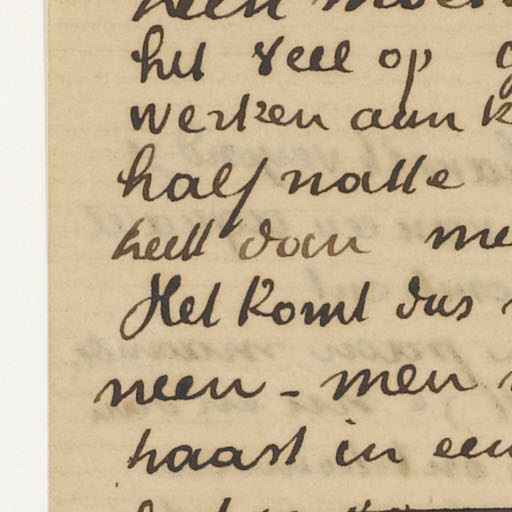 heeft moe
het veel op
werken aan k
half natte
heeft dan me
Het komt dus
neen - men
haast in een